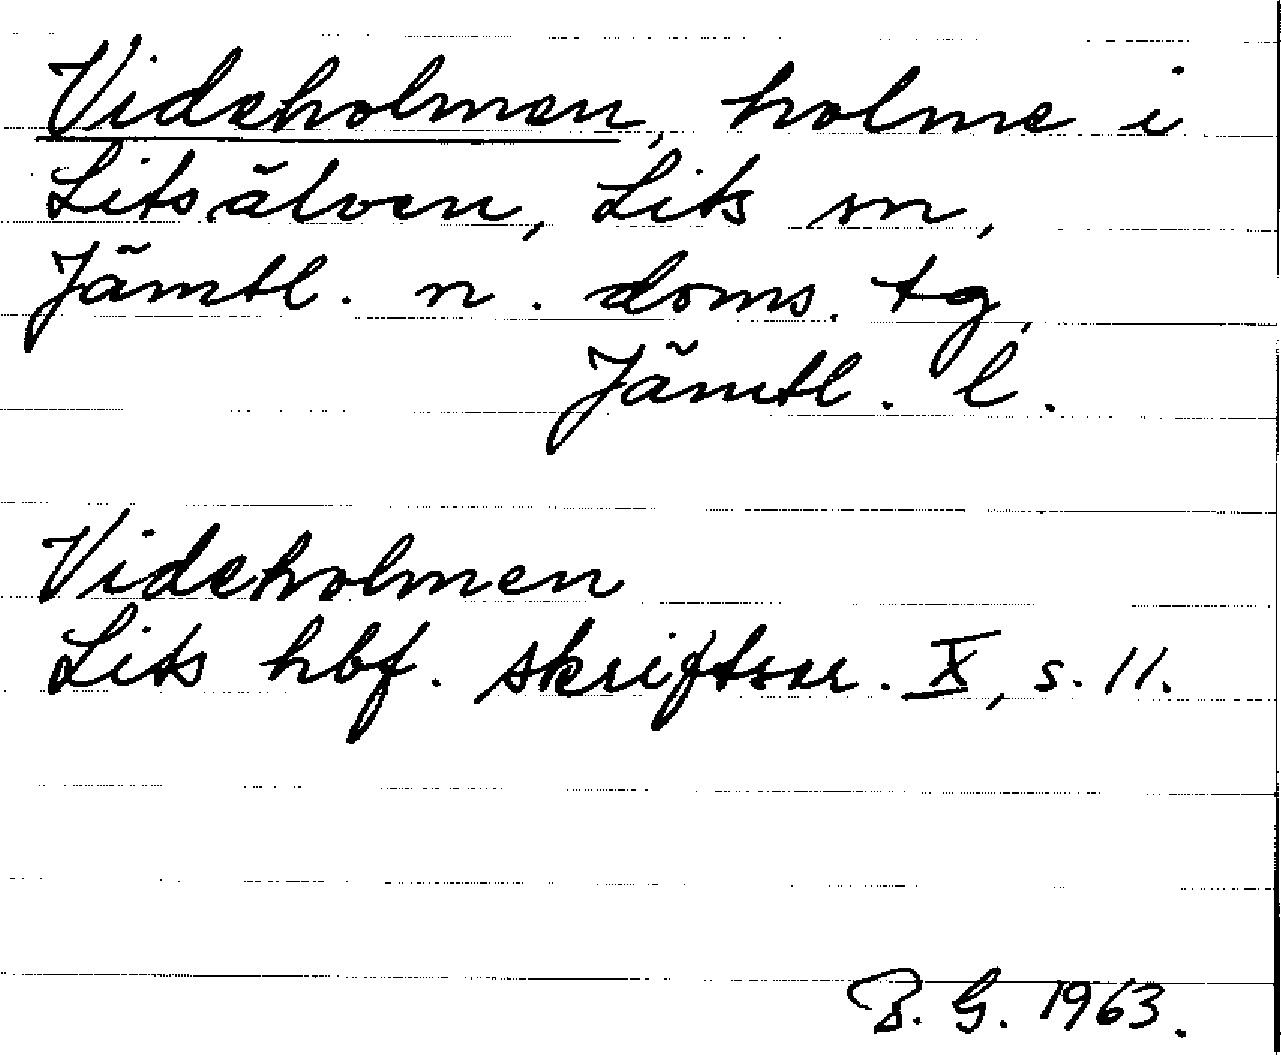 Videholmen, holme i
Litsälven, Lits sn,
Jämtl. n. doms. tg,
Jämtl. l.
Videholmen
Lits hbf. skriftser. X, s. 11.
B. G. 1963.